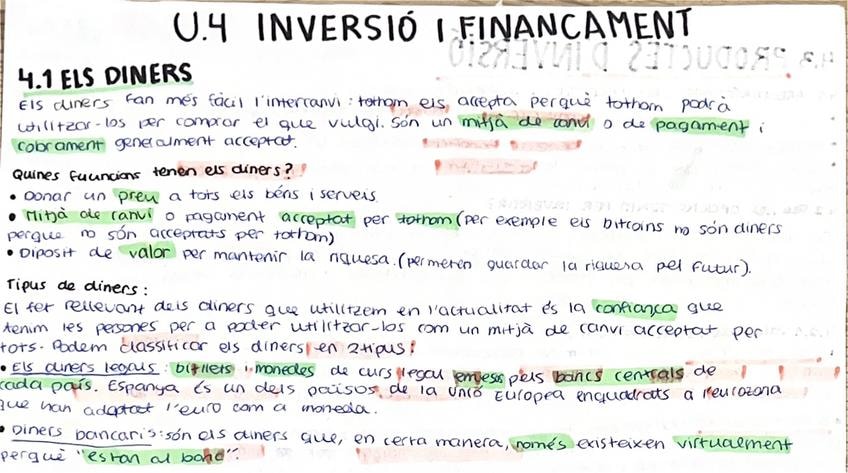 U.4 INVERSIÓ I FINANÇAMENT
4.1 ELS DINERS
Els diners fan més fàcil l'intercanvi: tothom els accepta perquè tothom podrà
utilitzar-los per comprar el que vulgi. Són un mitjà de canvi o de pagament i
cobrament generalment acceptat.
Quines funcions tenen els diners?
• Donar un preu a tots els béns i serveis.
• Mitjà de canvi o pagament acceptat per tothom (per exemple els bitcoins no són diners
perquè no són acceptats per tothom)
• Diposit de valor per mantenir la riquesa. (permeten guardar la riquesa pel futur).
Tipus de diners:
El fet rellevant dels diners que utilitzem en l'actualitat és la confiança que
tenim les persones per a poder utilitzar-los com un mitjà de canvi acceptat per
tots. Podem classificar els diners en 2 tipus:
• Els diners legals: bitllets i monedes de curs legal emesos pels bancs centrals de
cada país. Espanya és un dels països de la Unió Europea enquadrats a l'eurozona
que han adoptat l'euro com a moneda.
• Diners bancaris: són els diners que, en certa manera, només existeixen virtualment
perquè "estan al banc".